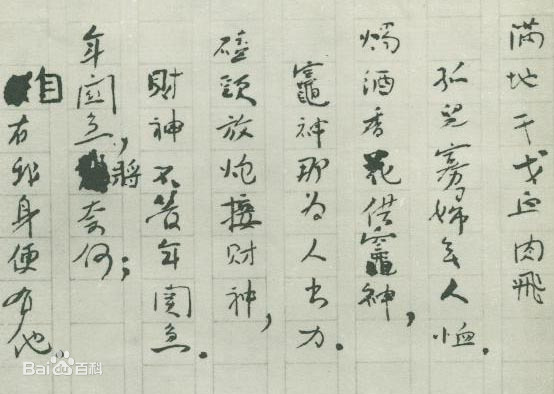 满地干戈血肉飛
孤兒寡婦无人恤。
燭酒香花供竈神,
竈神那为人出力。
磕頭放炮接財神,
財神不管年関急。
年関急,將奈何;
自有我身便有他。
Bai百科